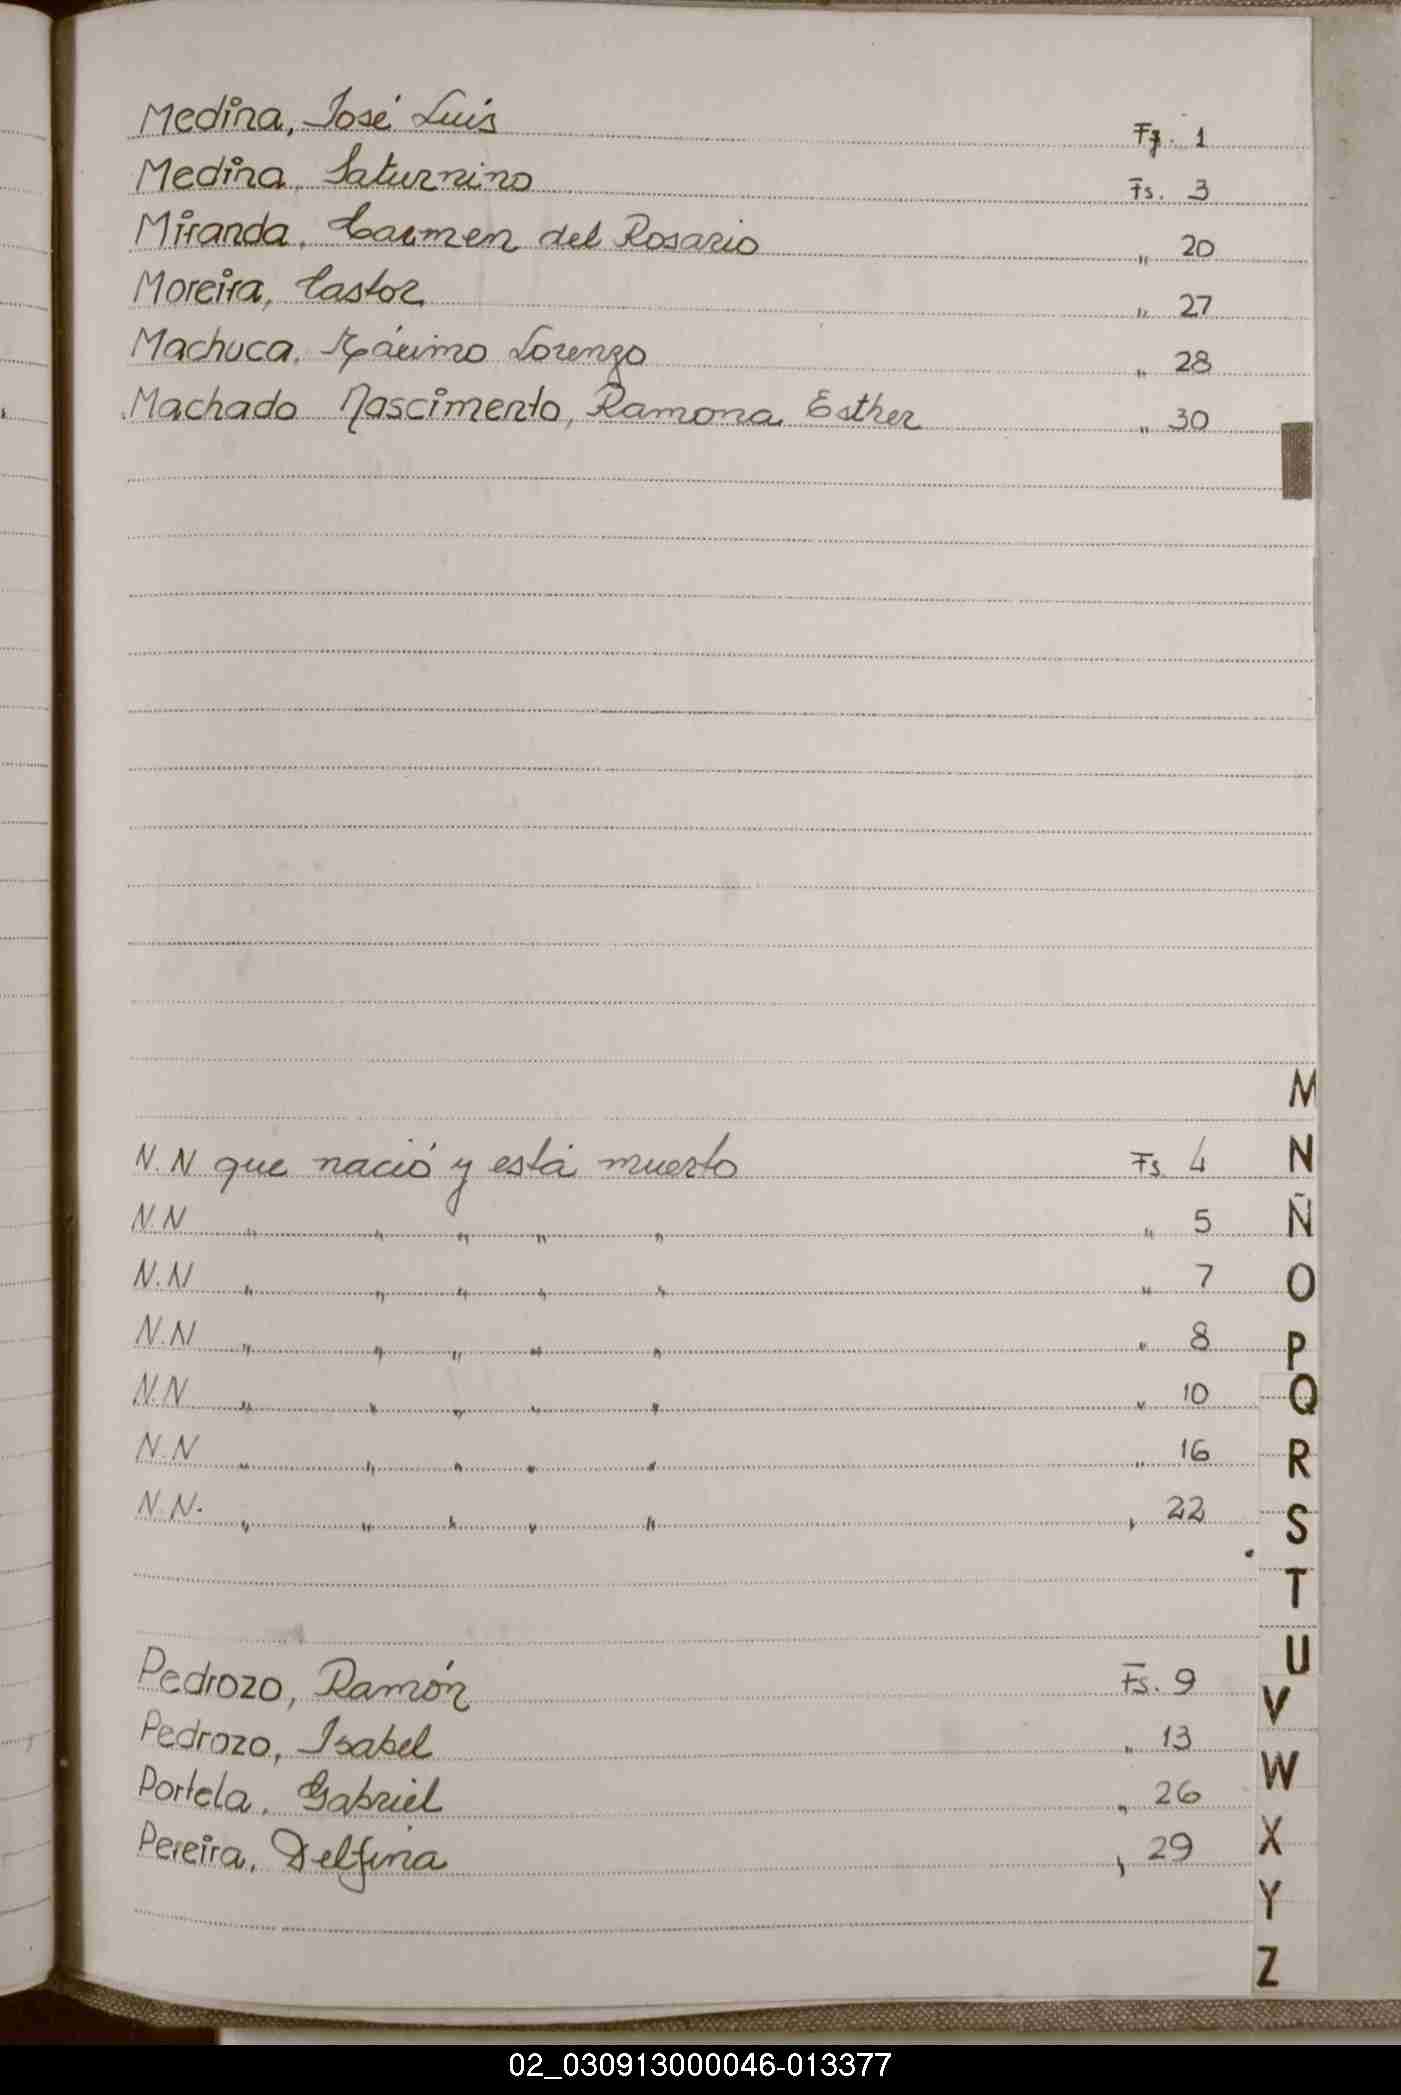 Medina, José Luis Fs. 1
Medina, Saturnino Fs. 3
Miranda, Carmen del Rosario " 20
Moreira, Castor " 27
Machuca, Máximo Lorenzo " 28
Machado Nascimento, Ramona Esther " 30
M
N.N que nació y está muerto Fs. 4
N
N.N " " " " " " 5
Ñ
N.N " " " " " " 7
O
N.N " " " " " " 8
P
N.N " " " " " " 10
Q
N.N " " " " " " 16
R
N.N. " " " " " " 22
S
T
U
Pedrozo, Ramón Fs. 9
V
Pedrozo, Isabel " 13
W
Portela, Gabriel " 26
X
Pereira, Delfina " 29
Y
Z
02_030913000046-013377